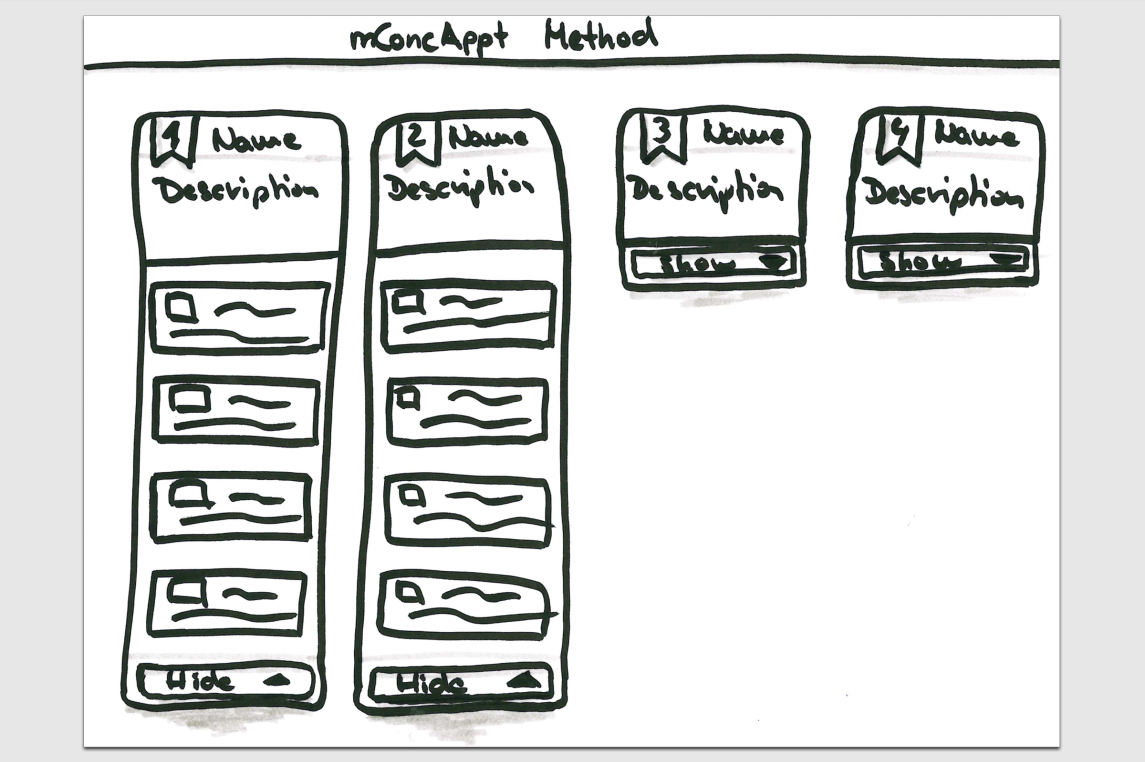 mConcAppt Method
1 Name
Description
Hide
2 Name
Description
Hide
3 Name
Description
Show
4 Name
Description
Show